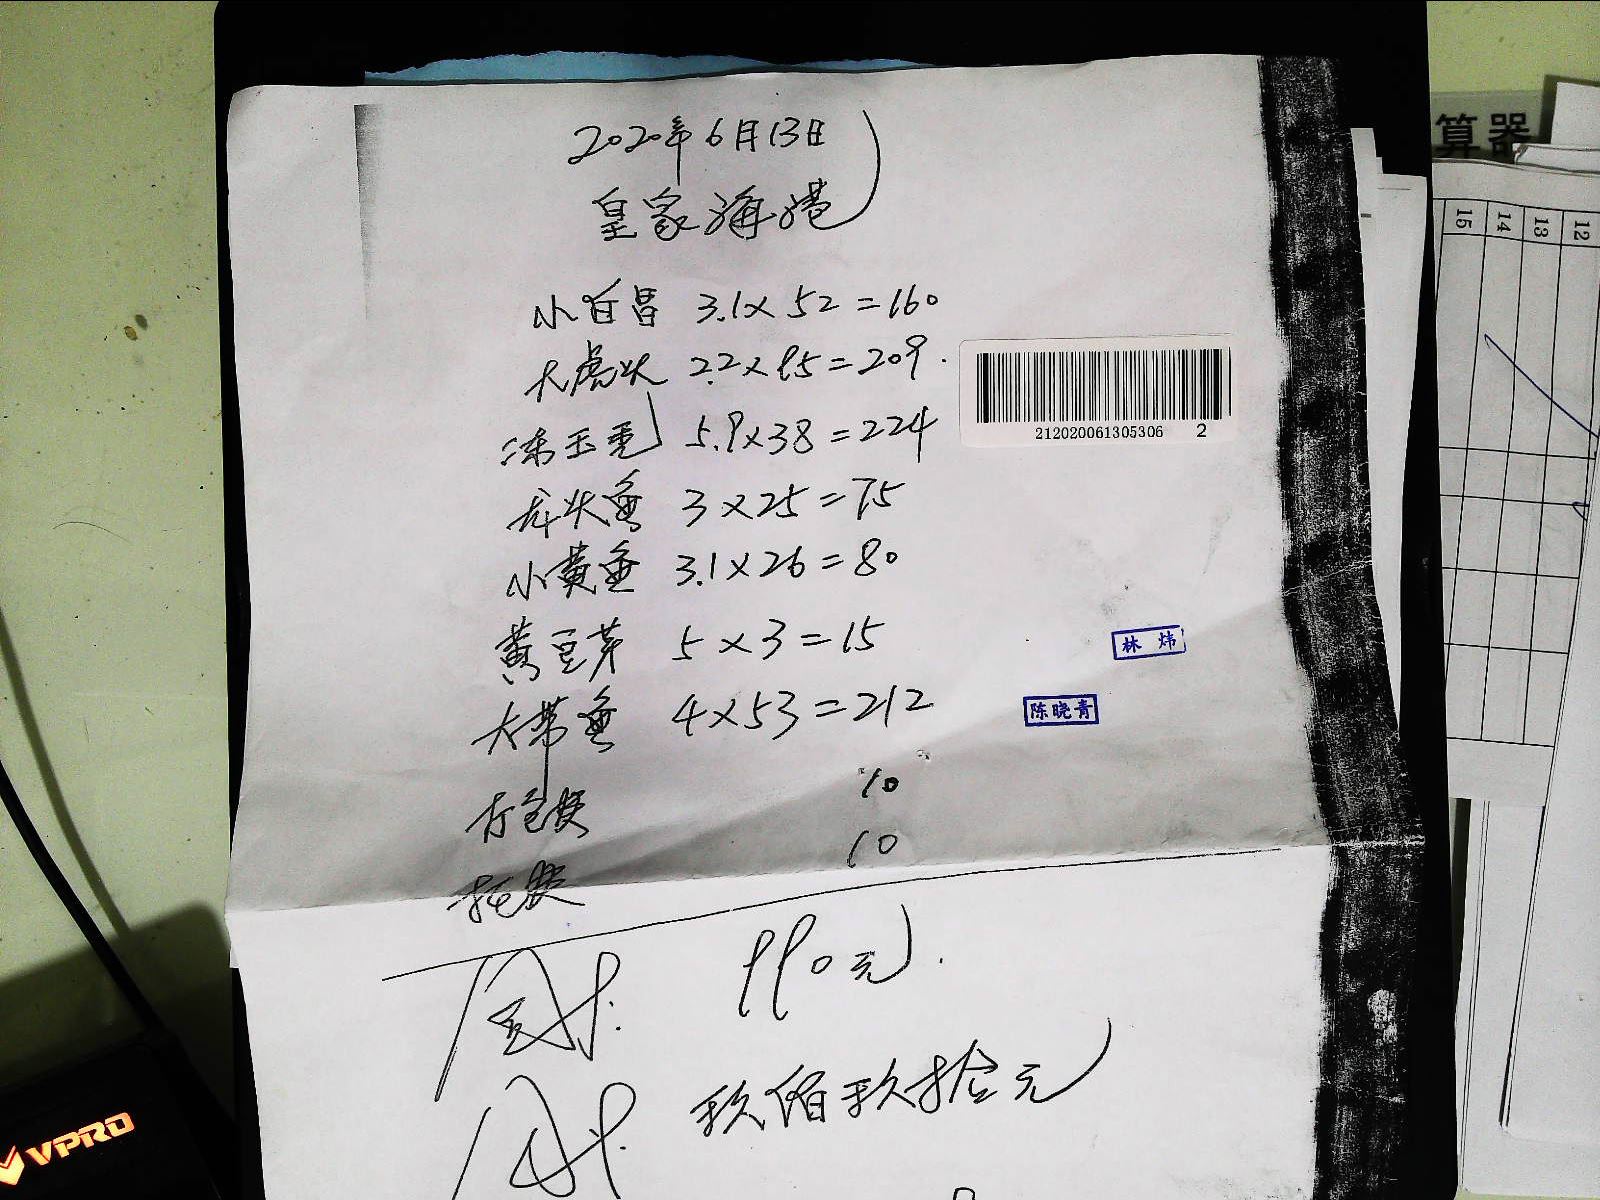 2020年6月13日
皇家海港
小白昌 3.1×52=160
大虎头 2.2×95=209.
冻玉秃 5.9×38=224
龙头鱼 3×25=75
小黄鱼 3.1×26=80
黄豆芽 5×3=15
大带鱼 4×53=212
打包费 10
托费 10
合计: 990元.
合计: 玖佰玖拾元
212020061305306 2
林炜
陈晓青
算器
15 14 13 12
VPRO